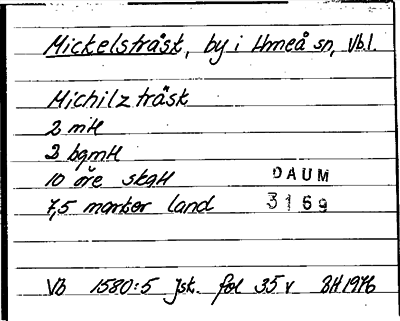 Mickelsträsk, by i Umeå sn, Vb.l.
Michilz träsk
2 mtl
2 bgmtl
10 öre skatt DAUM
7,5 marker land 3159
Vb 1580:5 Jsk. fol 35 v BH 1976